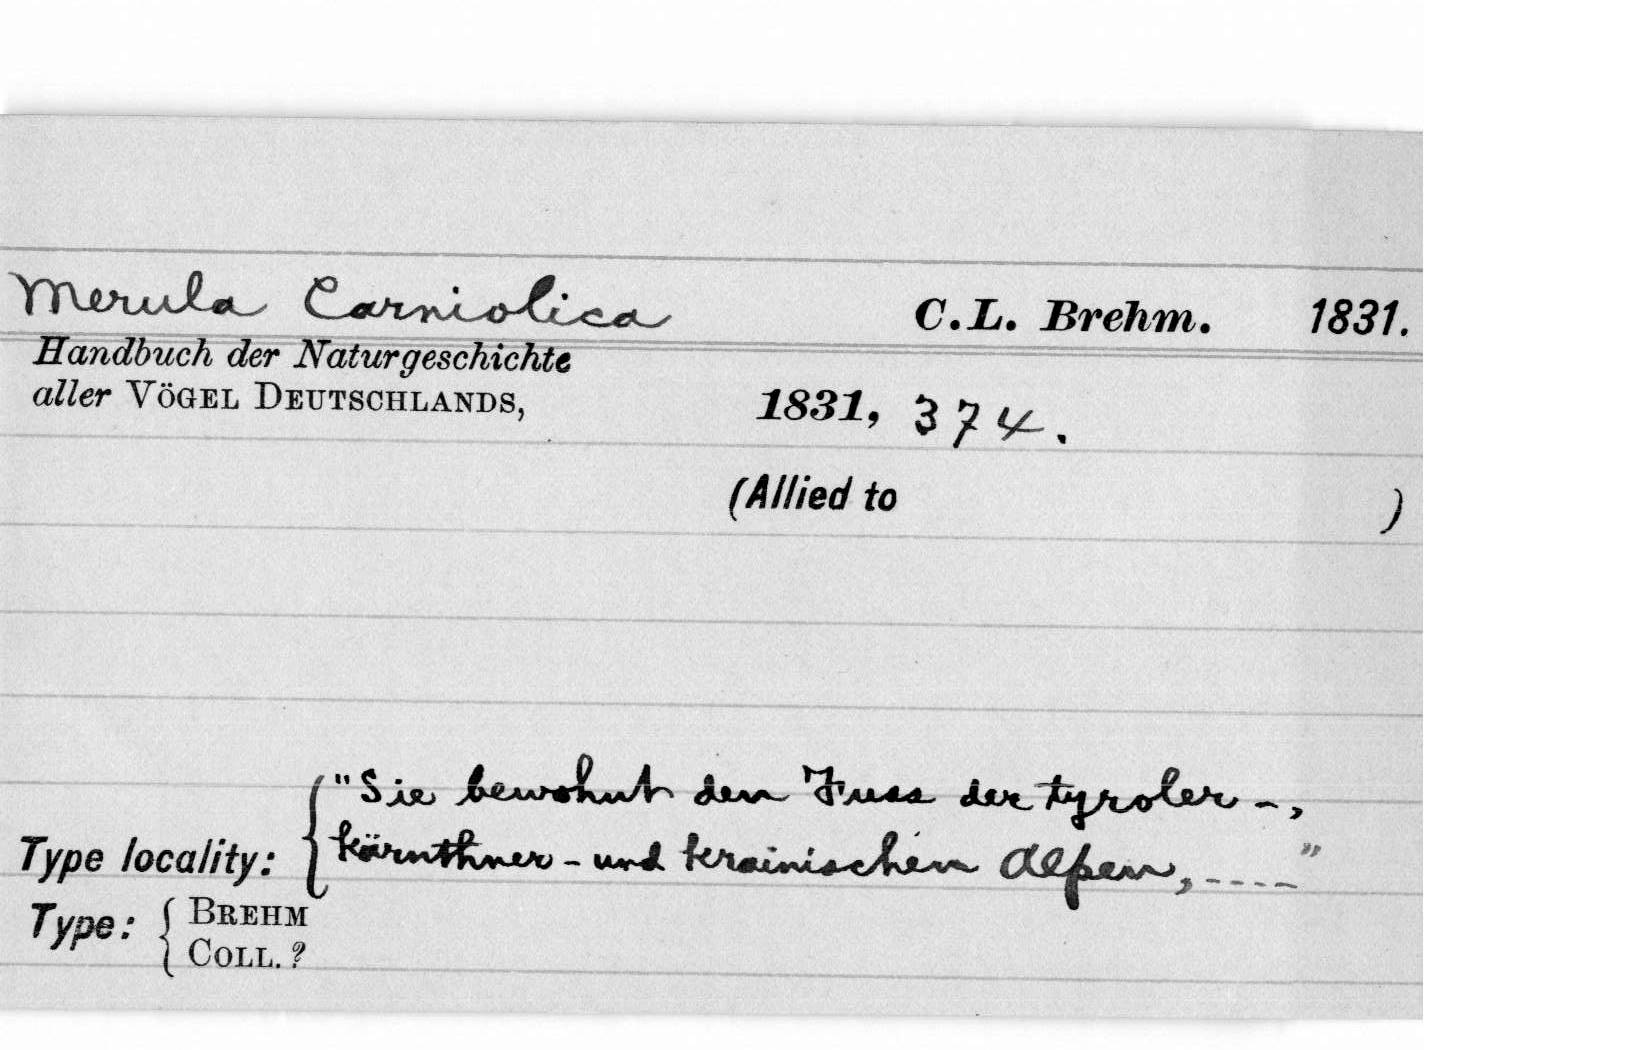 Merula Carniolica C.L. Brehm. 1831.
Handbuch der Naturgeschichte
aller VÖGEL DEUTSCHLANDS, 1831, 374.
(Allied to )
"Sie bewohnt den Fuss der tyroler -,
Type locality: kärnthner - und krainischen Alpen, ----"
Type: BREHM
COLL. ?